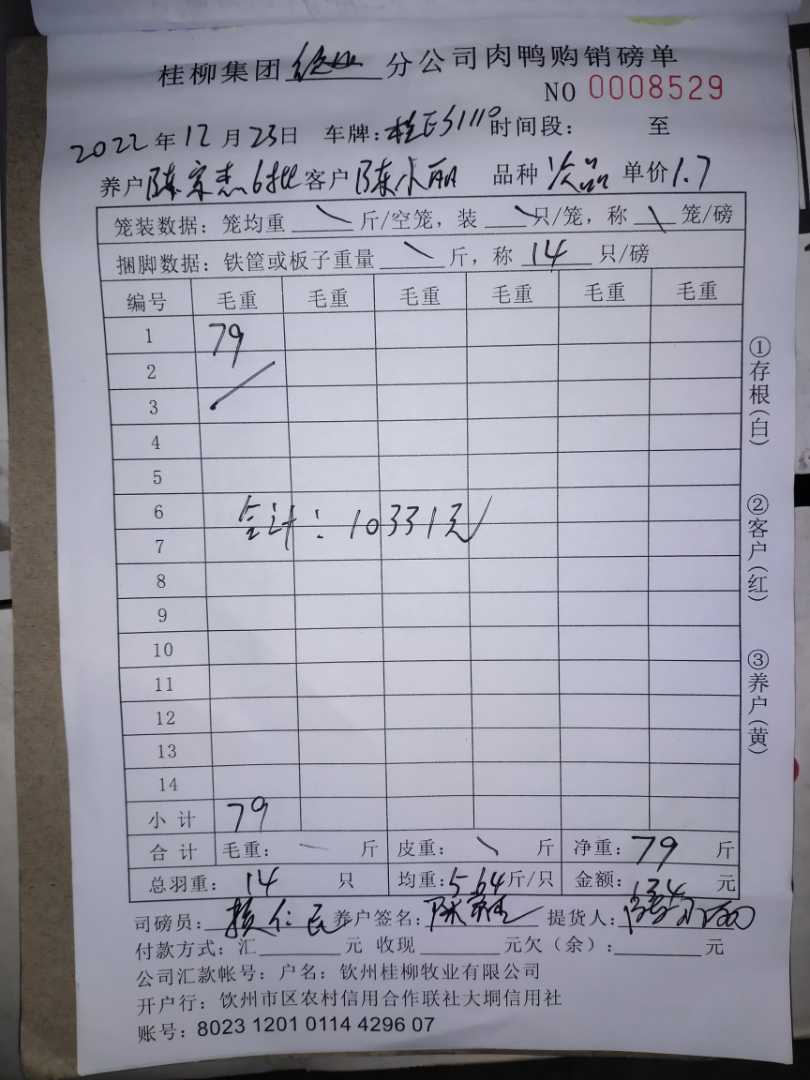 桂柳集团 分公司肉鸭购销磅单
NO 0008529
2022年12月23日 车牌: 时间段: 至
养户陈家杰6批 客户陈小丽 品种 次品 单价1.7
笼装数据: 笼均重 斤/空笼, 装 只/笼, 称 笼/磅
捆脚数据: 铁筐或板子重量 斤, 称 14 只/磅
编号 毛重 毛重 毛重 毛重 毛重 毛重
1 79
2
3
4
5
6
7
合计: 10331元
8
9
10
11
12
13
14
小计 79
合计 毛重: 斤 皮重: 斤 净重: 79 斤
总羽重: 14 只 均重: 5.64斤/只 金额: 134 元
司磅员: 养户签名: 陈家杰 提货人: 陈小丽
付款方式: 汇 元 收现 元欠(余): 元
公司汇款帐号: 户名: 钦州桂柳牧业有限公司
开户行: 钦州市区农村信用合作联社大垌信用社
账号: 8023 1201 0114 4296 07
①存根(白)
②客户(红)
③养户(黄)